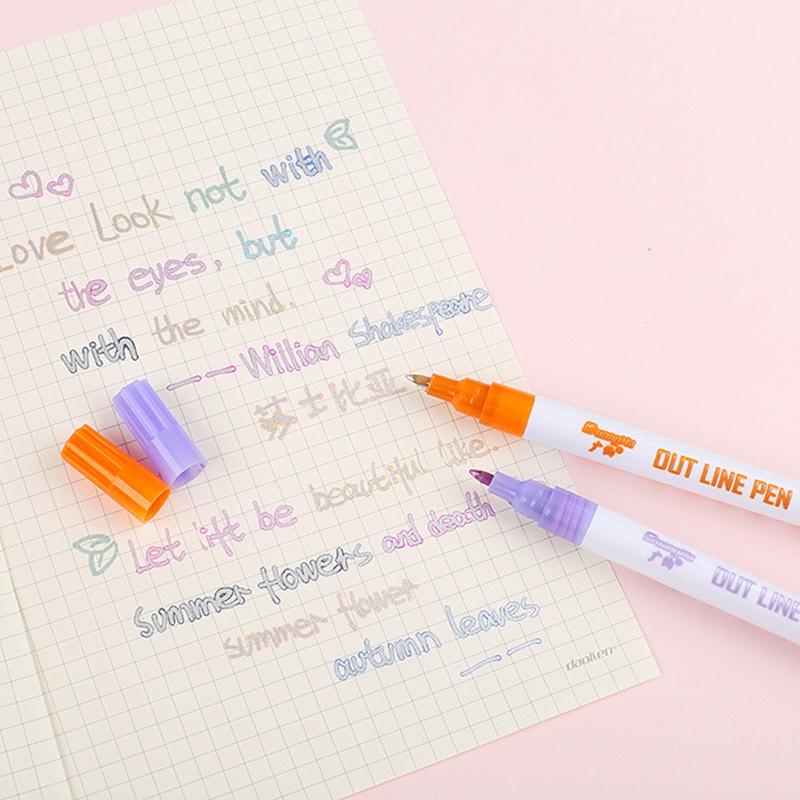 Love Look not with
the eyes, but
with the mind.
——Willian Shakespeare
莎士比亚
Let lift be beautiful like.
Summer flowers and death
summer flower
autumn leaves
daolien
Guangna
广纳
OUT LINE PEN
Guangna
广纳
OUT LINE